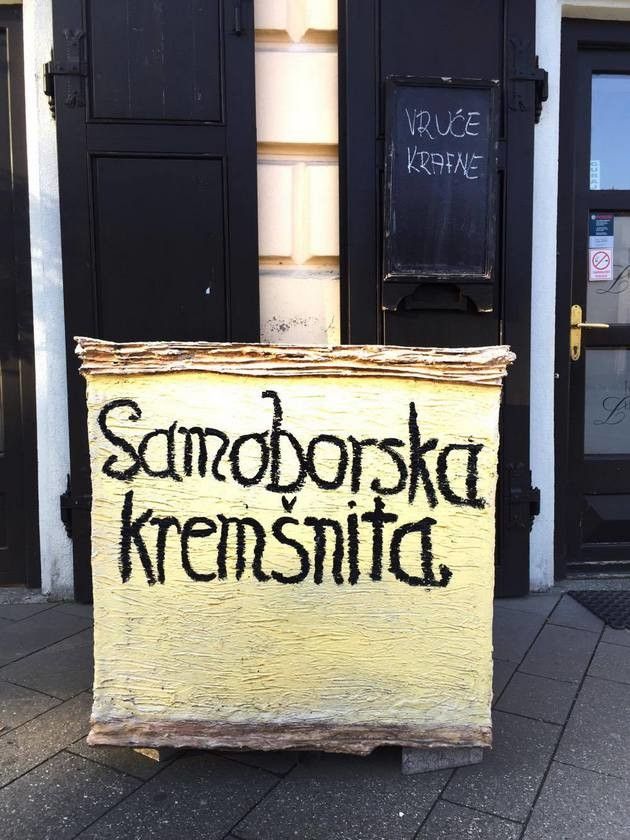 VRUĆE
KRAFNE
Samoborska
kremšnita